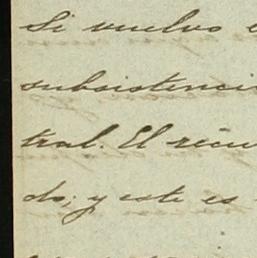 Si vuelvo
subsistenci
tral. El recu
do; y este es